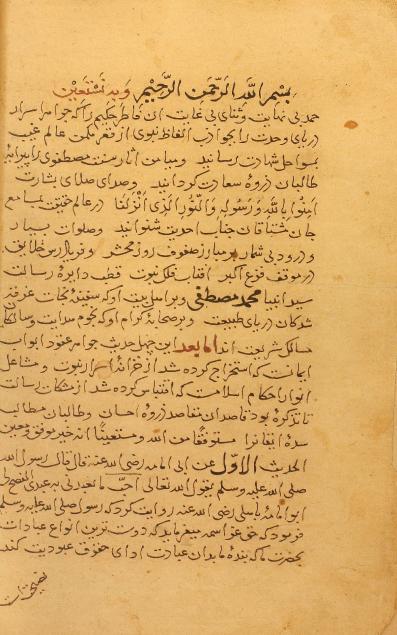 بسم الله الرحمن الرحيم وبه نستعين
حمد بی نهایت و ثنای بی غایت ان فاطر حکیم را که جواهر اسرار
دریای وحدت را بجواذب الفاظ نبوی از قعر مکمن عالم غیب
بسواحل شهادت رسانید و میامن اثار سنت مصطفوی را پیرایه
طالبان ذروه سعادت کردانید و صدای صلای بشارت
امنوا بالله ورسوله والنور الذی انزلنا در عالم حقیقت بمسامع
جان مشتاقان جناب احدیت شنوانید و صلوات بسیار
و درود بی شمار بر مبارز صفوف روز محشر و فریادرس خلایق
در موقف فزع اکبر افتاب فلک نبوت قطب دایره رسالت
سید انبیا محمد مصطفی و بر اهل بیت او که سفینه نجات غرقه
شدکان دریای طبیعت و بر صحابه کرام او که نجوم هدایت و سالکان
مسالک شریعت اند اما بعد این چهل حدیث جواهر عقود ابواب
ایمانست که استخراج کرده شد از خزانه اسرار نبوت و مشاعل
انوار احکام اسلامست که اقتباس کرده شد از مشکات رسالت
تا تذکره بود قاصدان مقاصد ذروه احسان و طالبان مطالب
سده ایقانرا مستوفقا من الله ومستعینا انه خیر موفق ومعین
الحدیث الاول عن ابی امامه رضی الله عنه قال قال رسول الله
صلی الله علیه وسلم یقول الله تعالی احب ما تعبدنی به عبدی النصح لی
ابو امامه باهلی رضی الله عنه روایت کرد که رسول صلی الله علیه وسلم
فرمود که حق عز اسمه میفرماید که دوست ترین انواع عبادات
بحضرت ما که بنده ما بدان عبادت ادای حقوق عبودیت کند
نصیحتست